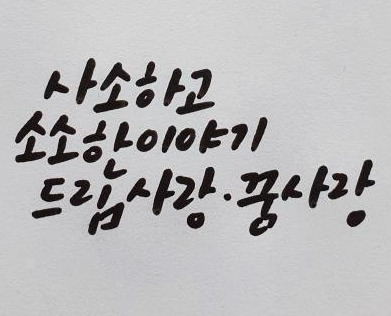 사소하고
소소한 이야기
드림사랑·꿍사랑